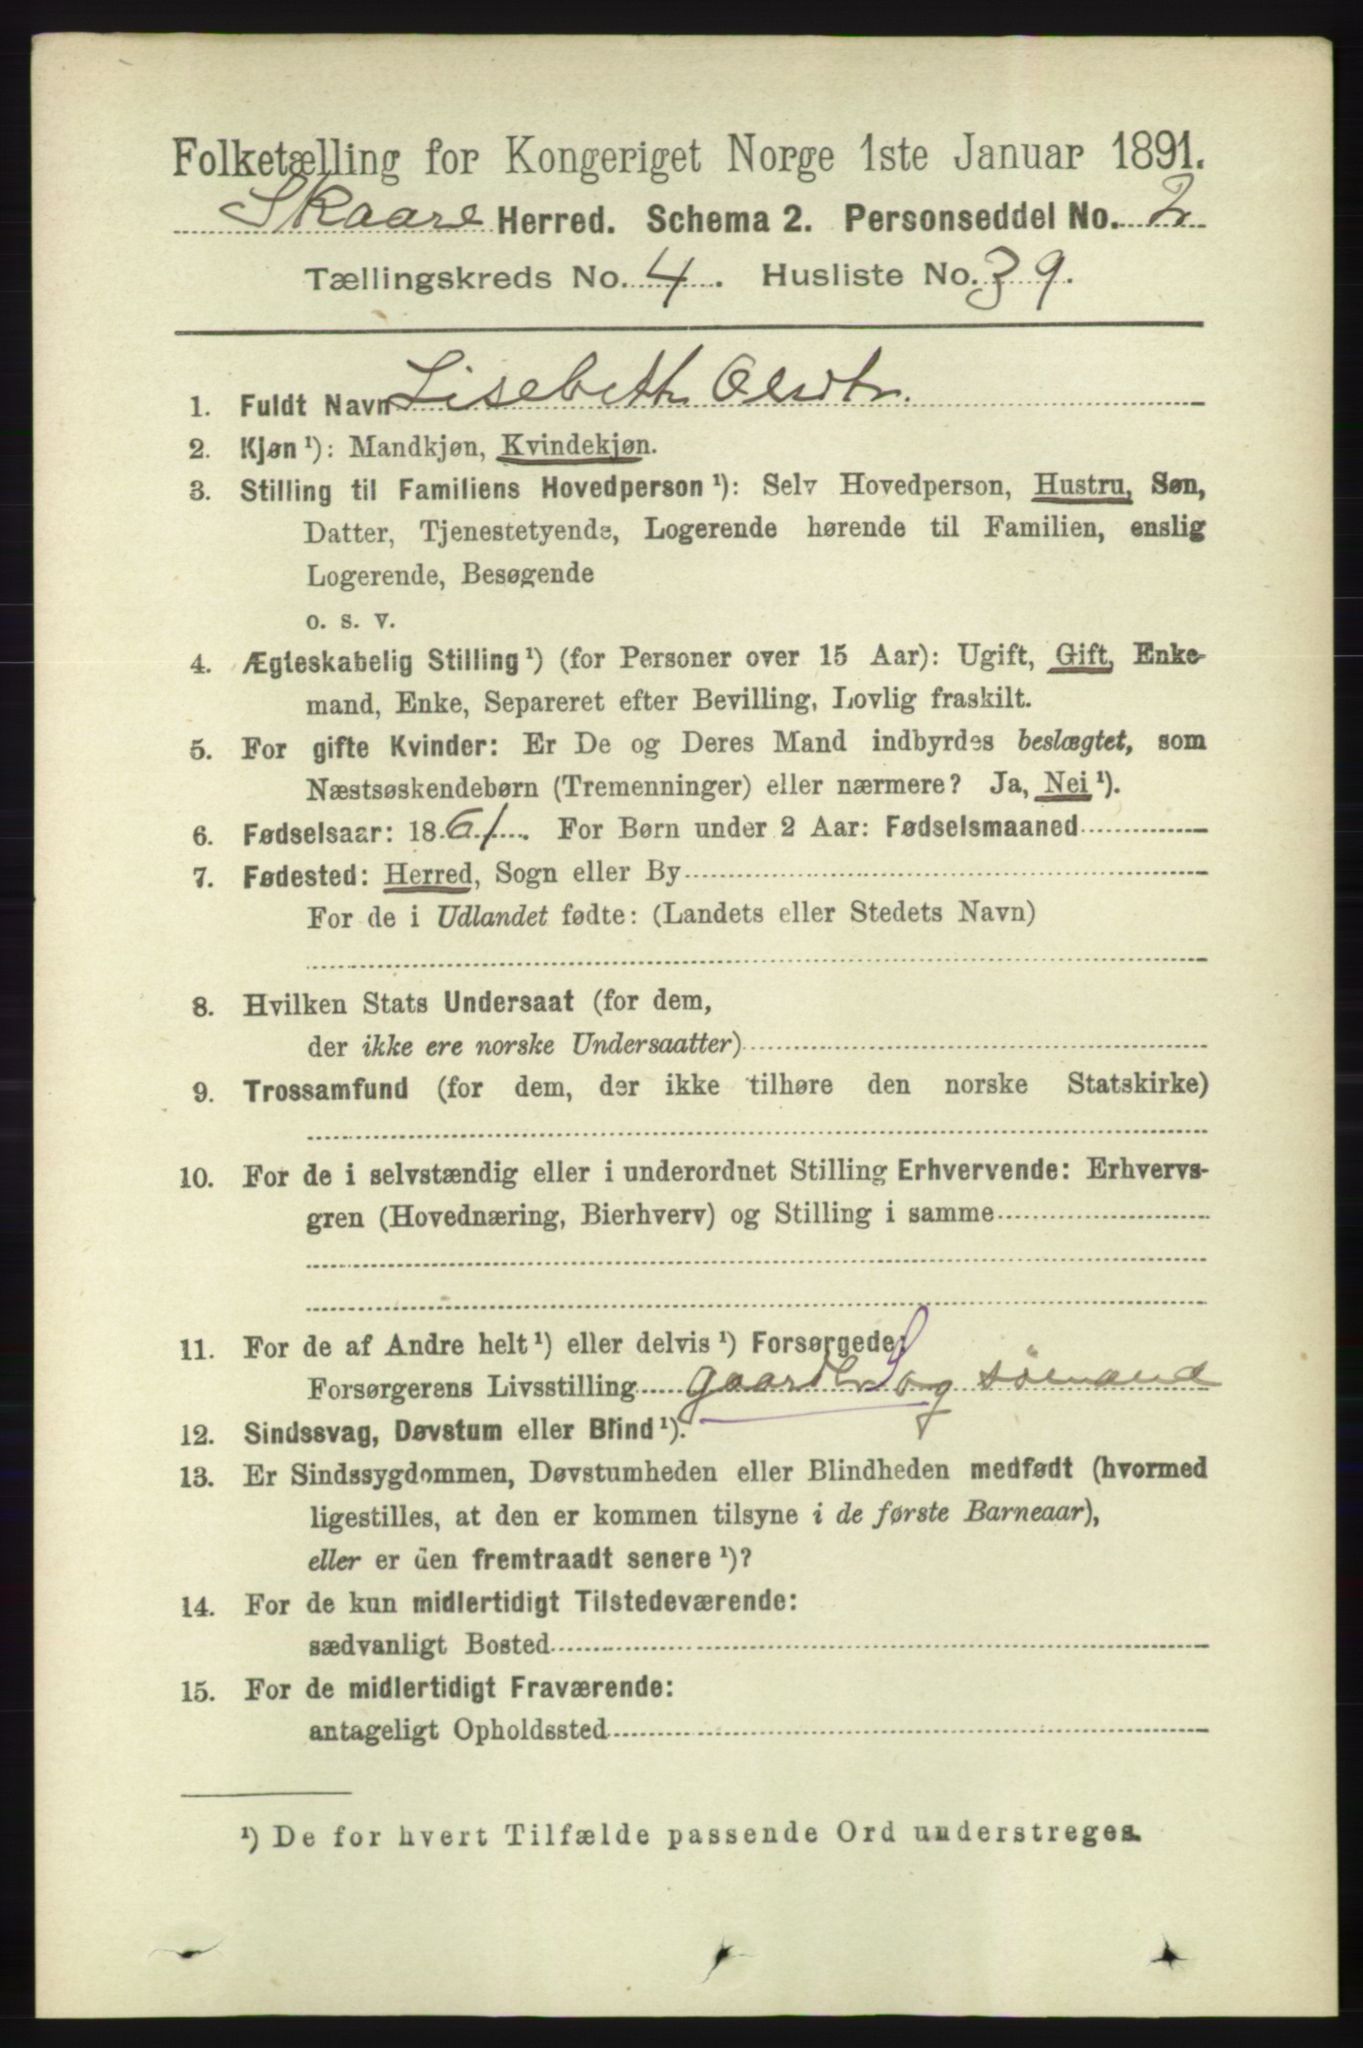 Folketælling for Kongeriget Norge 1ste Januar 1891.
Skaare Herred. Schema 2. Personseddel No. 2
Tællingskreds No. 4. Husliste No. 39.
1. Fuldt Navn Lisebeth Olsdtr.
2. Kjøn ¹): Mandkjøn, Kvindekjøn.
3. Stilling til Familiens Hovedperson ¹): Selv Hovedperson, Hustru, Søn,
Datter, Tjenestetyende, Logerende hørende til Familien, enslig
Logerende, Besøgende
o. s. v.
4. Ægteskabelig Stilling ¹) (for Personer over 15 Aar): Ugift, Gift, Enke-
mand, Enke, Separeret efter Bevilling, Lovlig fraskilt.
5. For gifte Kvinder: Er De og Deres Mand indbyrdes beslægtet, som
Næstsøskendebørn (Tremenninger) eller nærmere? Ja, Nei ¹).
6. Fødselsaar: 1861. For Børn under 2 Aar: Fødselsmaaned
7. Fødested: Herred, Sogn eller By
For de i Udlandet fødte: (Landets eller Stedets Navn)
8. Hvilken Stats Undersaat (for dem,
der ikke ere norske Undersaatter)
9. Trossamfund (for dem, der ikke tilhøre den norske Statskirke)
10. For de i selvstændig eller i underordnet Stilling Erhvervende: Erhvervs-
gren (Hovednæring, Bierhverv) og Stilling i samme
11. For de af Andre helt ¹) eller delvis ¹) Forsørgede:
Forsørgerens Livsstilling og sömand
12. Sindssvag, Døvstum eller Blind ¹).
13. Er Sindssygdommen, Døvstumheden eller Blindheden medfødt (hvormed
ligestilles, at den er kommen tilsyne i de første Barneaar),
eller er den fremtraadt senere ¹)?
14. For de kun midlertidigt Tilstedeværende:
sædvanligt Bosted
15. For de midlertidigt Fraværende:
antageligt Opholdssted
¹) De for hvert Tilfælde passende Ord understreges.